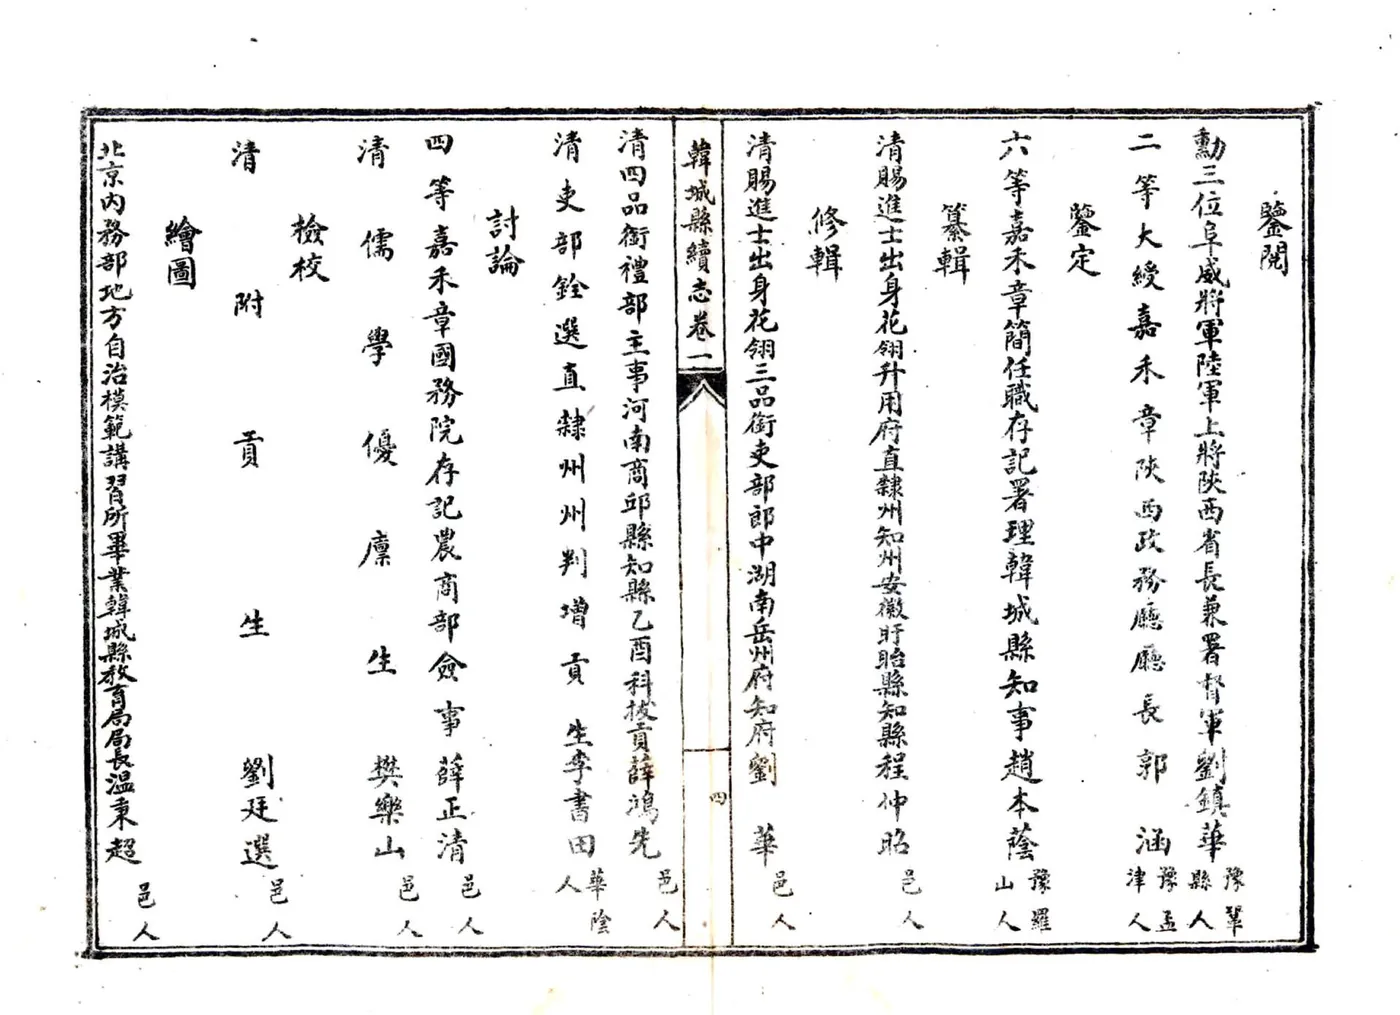 鑒閱
勳三位阜威將軍陸軍上將陝西省長兼署督軍劉鎮華豫鞏縣人
二等大綬嘉禾章陝西政務廳廳長郭涵豫孟津人
鑒定
六等嘉禾章簡任職存記署理韓城縣知事趙本蔭豫羅山人
纂輯
清賜進士出身花翎升用府直隸州知州安徽盱眙縣知縣程仲昭邑人
修輯
清賜進士出身花翎三品銜吏部郎中湖南岳州府知府劉華邑人
韓城縣續志卷一
四
清四品銜禮部主事河南商邱縣知縣乙酉科拔貢薛鴻先邑人
清吏部銓選直隸州州判增貢生李書田華陰人
討論
四等嘉禾章國務院存記農商部僉事薛正清邑人
清儒學優廩生樊樂山邑人
檢校
清附貢生劉廷選邑人
繪圖
北京內務部地方自治模範講習所畢業韓城縣教育局局長溫秉超邑人